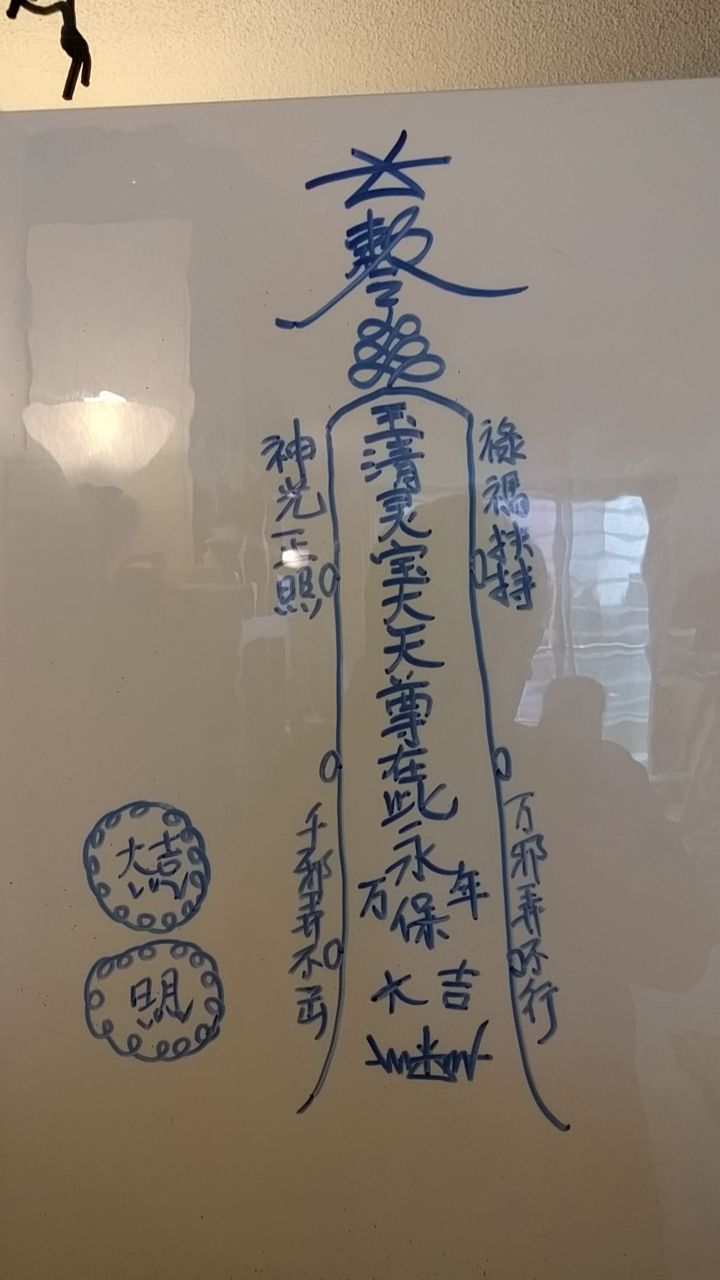 敕
令
玉清灵宝大天尊在此永保
万年
大吉
禄福扶持
神光正照
万邪弄不行
千邪弄不出
大吉
明